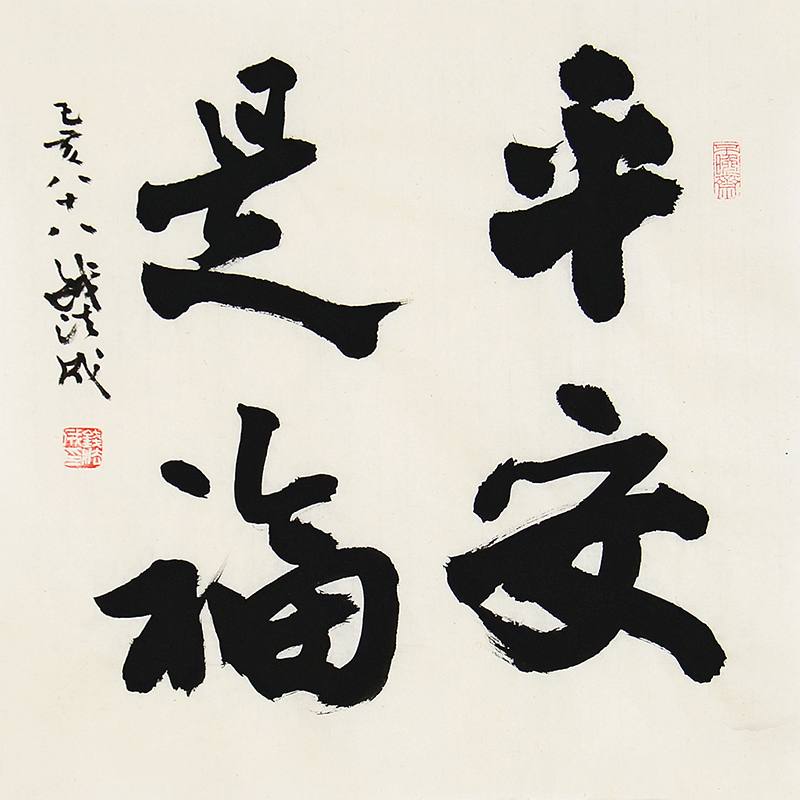 平安
是福
己亥八十八钱法成